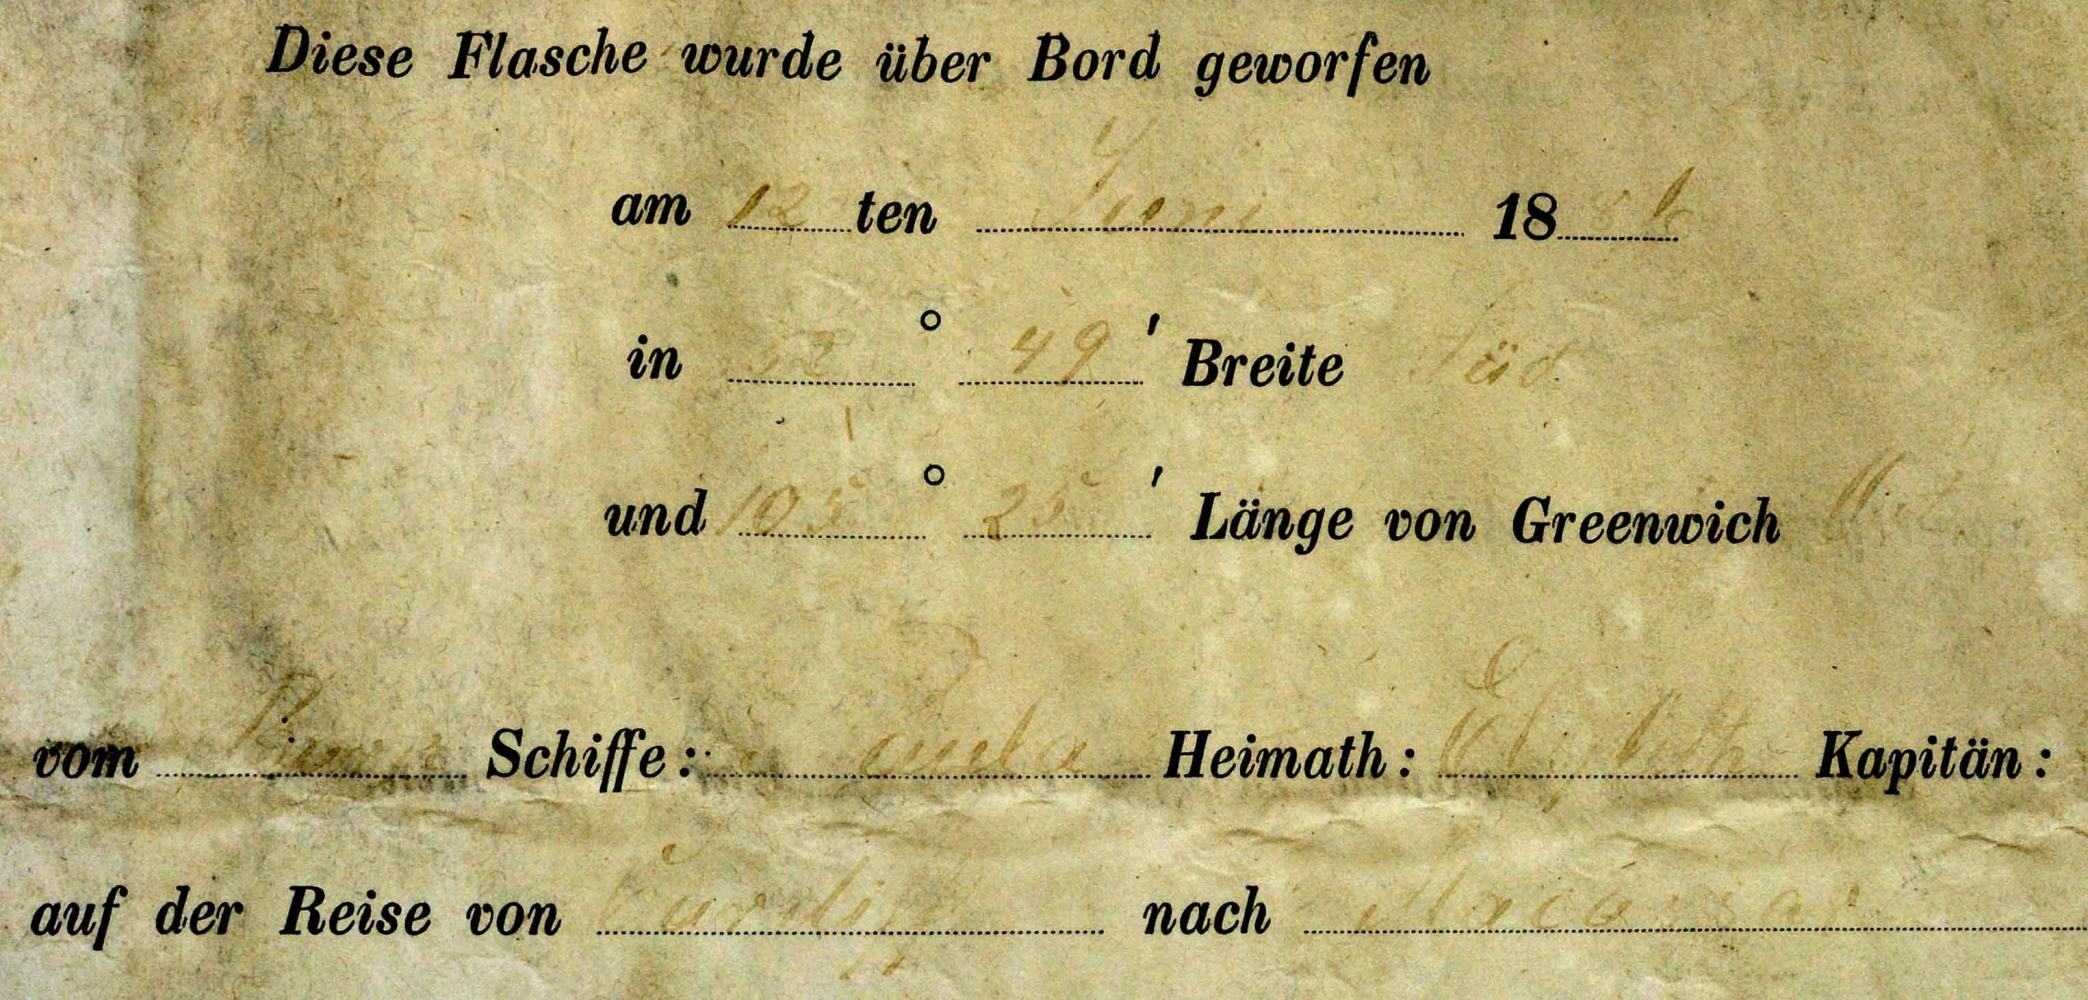 Diese Flasche wurde über Bord geworfen
am 12 ten Juni 18 6
in 32 ° 49 ' Breite Süd
und 105 ° 25 ' Länge von Greenwich Ost
vom Schiffe: Paula Heimath: Elsfleth Kapitän:
auf der Reise von Cardiff nach Macassar